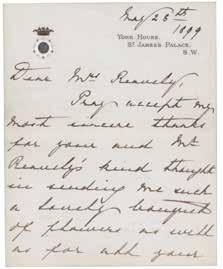 May 28th
1899
YORK HOUSE,
ST. JAMES'S PALACE,
S.W.
Dear Mrs Reavely,
Pray accept my
most sincere thanks
for your and Mr
Reavely's kind thought
in sending me such
a lovely bouquet
of flowers as well
as for all your